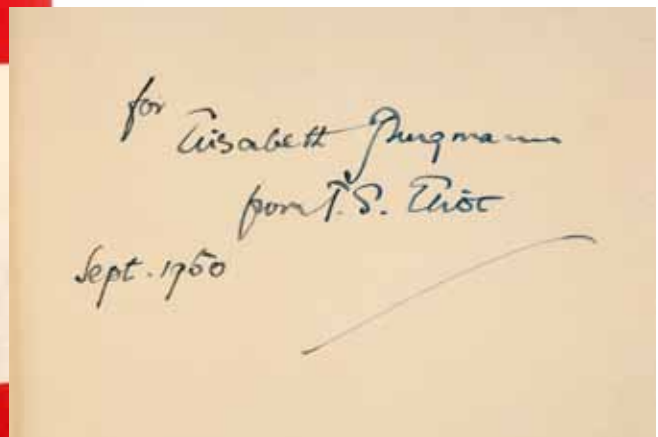 for
Elisabeth Jungmann
from T. S. Eliot
Sept. 1950